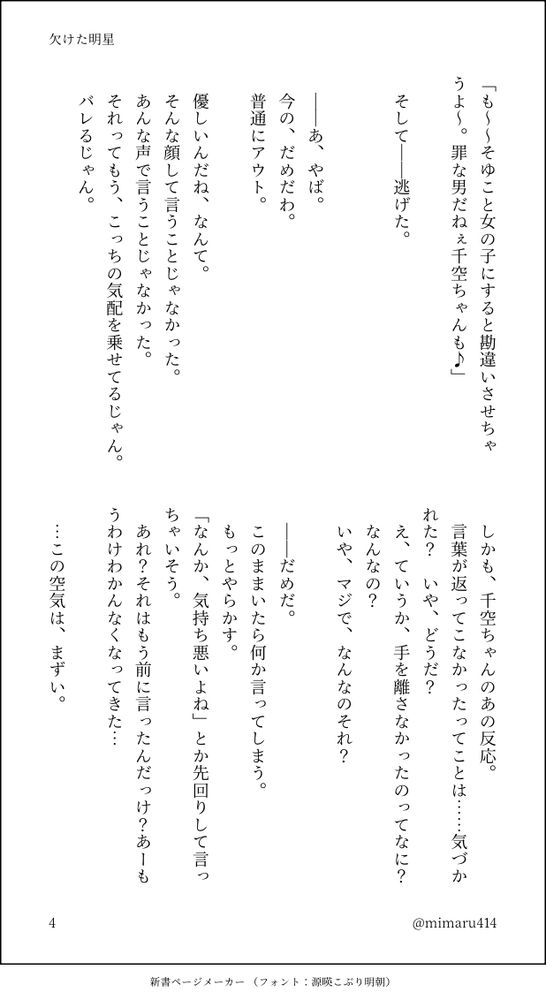 欠けた明星
「も〜〜そゆこと女の子にすると勘違いさせちゃ
うよ〜。罪な男だねぇ千空ちゃんも♪」
そして――逃げた。
――あ、やば。
今の、だめだわ。
普通にアウト。
優しいんだね、なんて。
そんな顔して言うことじゃなかった。
あんな声で言うことじゃなかった。
それってもう、こっちの気配を乗せてるじゃん。
バレるじゃん。
しかも、千空ちゃんのあの反応。
言葉が返ってこなかったってことは……気づか
れた?　いや、どうだ?
え、ていうか、手を離さなかったのってなに?
なんなの?
いや、マジで、なんなのそれ?
――だめだ。
このままいたら何か言ってしまう。
もっとやらかす。
「なんか、気持ち悪いよね」とか先回りして言っ
ちゃいそう。
あれ?それはもう前に言ったんだっけ?あーも
うわけわかんなくなってきた…
…この空気は、まずい。
4
@mimaru414
新書ページメーカー（フォント：源暎こぶり明朝）